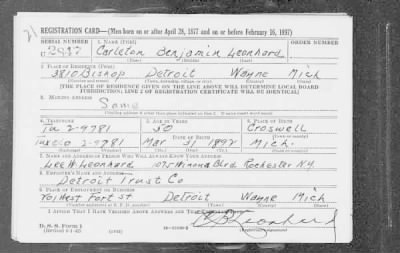 REGISTRATION CARD—(Men born on or after April 28, 1877 and on or before February 16, 1897)
SERIAL NUMBER 1. NAME (Print) ORDER NUMBER
U 2837 Carleton Benjamin Leonhard
(First) (Middle) (Last)
2. PLACE OF RESIDENCE (Print)
3810 Bishop Detroit Wayne Mich
(Number and street) (Town, township, village, or city) (County) (State)
[THE PLACE OF RESIDENCE GIVEN ON THE LINE ABOVE WILL DETERMINE LOCAL BOARD
JURISDICTION; LINE 2 OF REGISTRATION CERTIFICATE WILL BE IDENTICAL]
3. MAILING ADDRESS
Same
4. TELEPHONE 5. AGE IN YEARS 6. PLACE OF BIRTH
Tu 2-9781 50 Croswell
DATE OF BIRTH
2-9781 Mar 31 1892 Mich.
7. NAME AND ADDRESS OF PERSON WHO WILL ALWAYS KNOW YOUR ADDRESS
Lee H. Leonhard 1075 Winona Blvd. Rochester N.Y.
8. EMPLOYER'S NAME AND ADDRESS
Detroit Trust Co
9. PLACE OF EMPLOYMENT OR BUSINESS
201 West Fort St Detroit Wayne Mich
(Number and street or R. F. D. number) (Town) (County) (State)
I AFFIRM THAT I HAVE VERIFIED ABOVE ANSWERS AND THAT THEY ARE TRUE.
D. S. S. Form 1
(Revised 4-1-42) (over) (Registrant's signature)